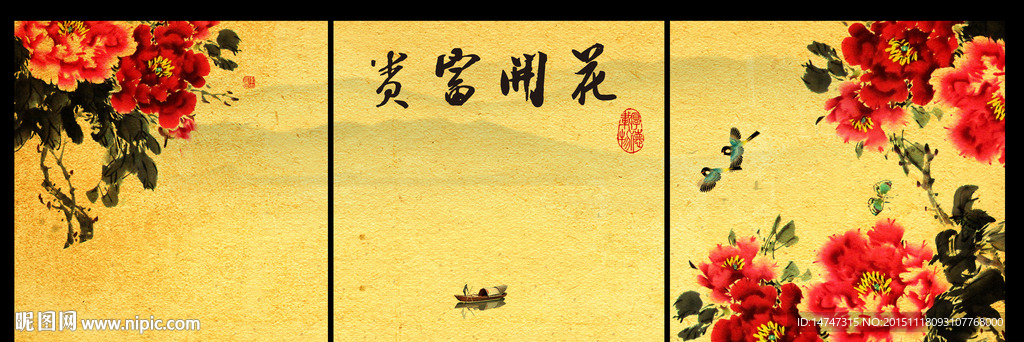 花開富貴
厚德載物
昵图网 www.nipic.com
ID:14747315 NO:20151118093107768000